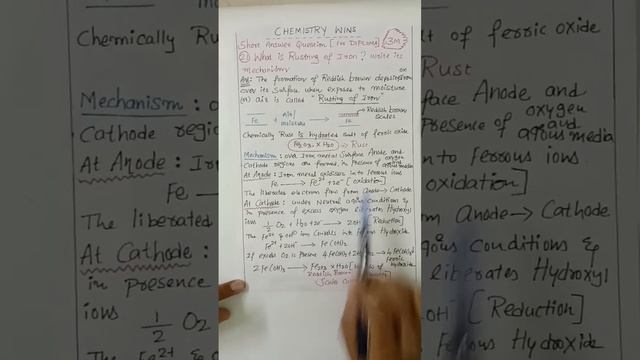 CHEMISTRY WINS
Short Answer Question [1st DIPLOMA] 3M
2) What is Rusting of Iron? Write its
mechanism
Ans: The formation of Reddish brown
over its Surface when exposes to moisture
(or) air is called "Rusting of Iron"
Fe Air/ moisture Reddish brown scales
Chemically Rust is hydrated salt of ferric oxide
Fe2O3 x H2O → Rust
Mechanism: over Iron metal Surface Anode and
Cathode regions are formed in Presence of oxygen and
At Anode: Iron metal oxidises into ferrous ions
Fe → Fe2+ + 2e- [oxidation]
The liberates electrons flow from Anode → Cathode
At Cathode: under Neutral conditions &
in presence of excess oxygen liberates Hydroxyl
ions 1/2 O2 + H2O + 2e- → 2OH- [Reduction]
The Fe2+ & OH- ion Combines into Ferrous Hydroxide
Fe2+ + 2OH- → Fe(OH)2
If excess O2 is present 4Fe(OH)2 + → 4Fe(OH)3
ferric hydroxide
2Fe(OH)3 → Fe2O3 x H2O
Chemically Ru
lt of ferric oxide
Rust
Mechanism: o
face Anode and
Cathode regio
Presence of oxygen and
media
At Anode: Iron
into Ferrous ions
Fe
[oxidation]
The liberates e
om Anode → Cathode
At Cathode:
Conditions &
in presence
liberates Hydroxyl
ions
1/2 O2
OH- [Reduction]
The Fe2+ &
Ferrous Hydroxide